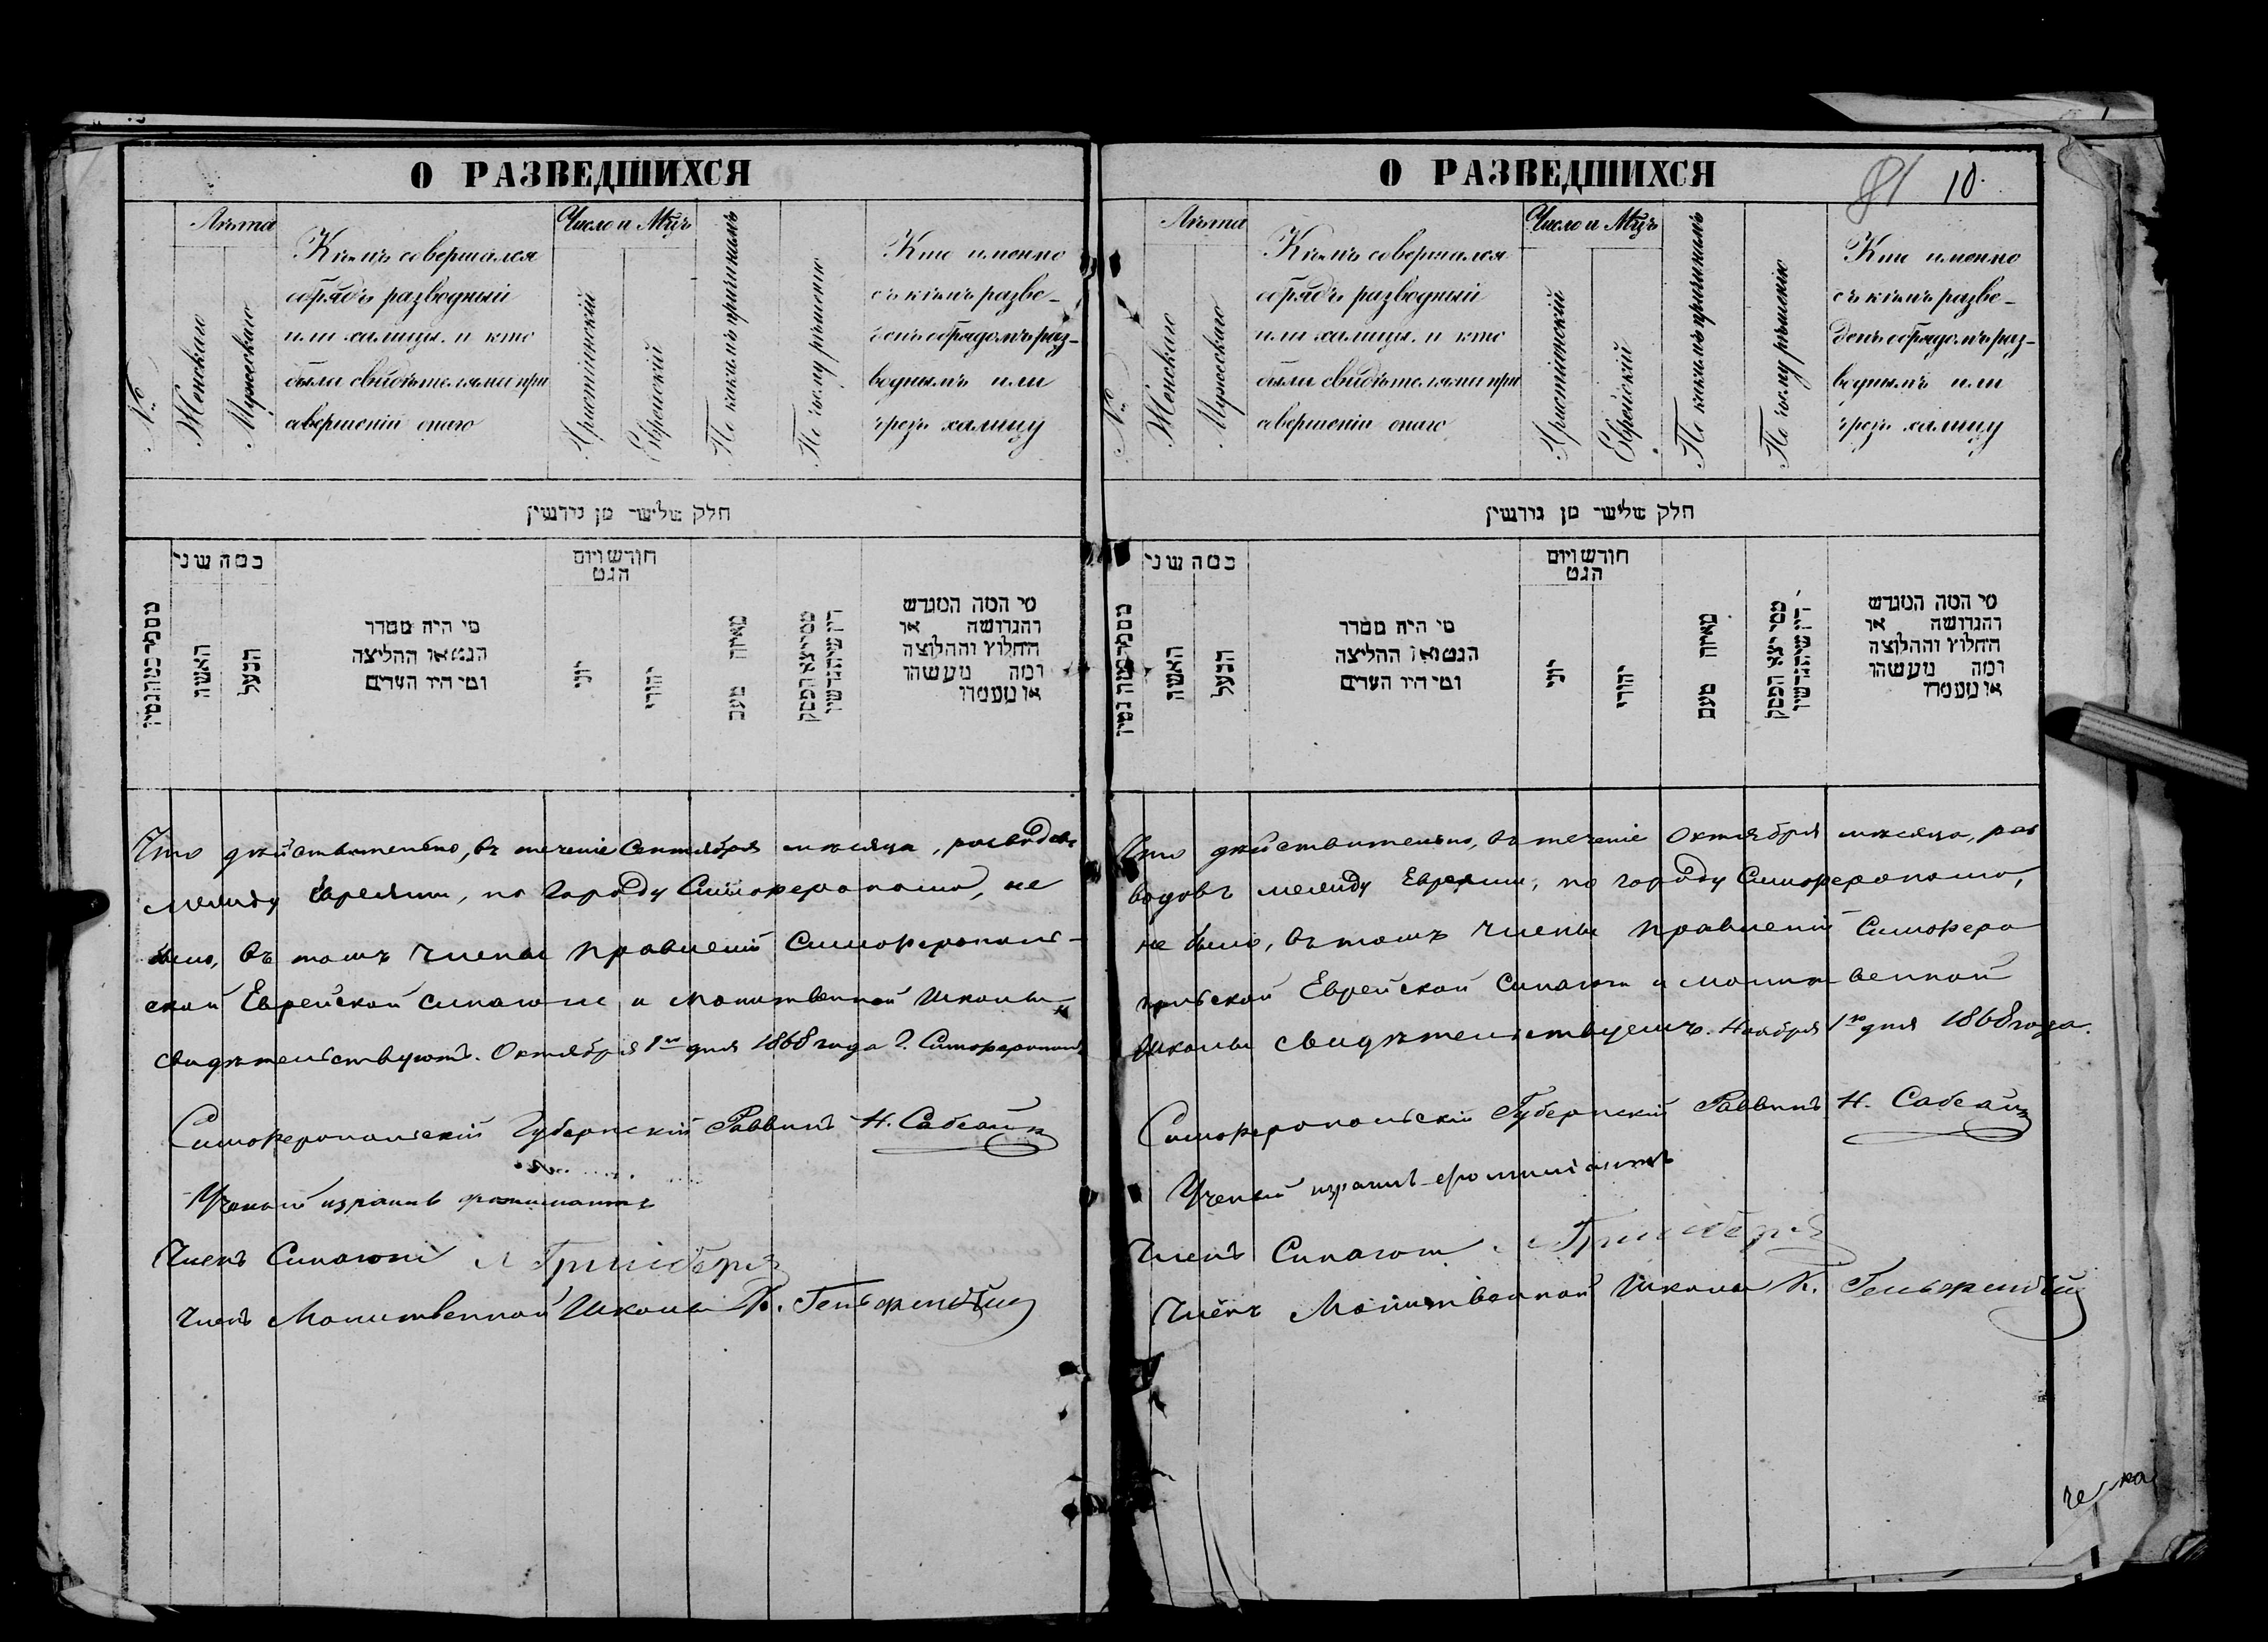 О РАЗВЕДШИХСЯ
№
Лѣта
Женскаго
Мужескаго
Кѣмъ совершался
обрядъ разводный
или халицы, и кто
были свидѣтелями при
совершеніи онаго
Число и Мцъ
Христіянскій
Еврейскій
По какимъ причинамъ
По чьему рѣшенію
Кто именно
съ кѣмъ разве-
денъ обрядомъ раз-
воднымъ или
чрезъ халицу
חלק שלישי מן גירושין
כמה שני
האשה
הבעל
מי היה מסדר
הגט או החליצה
ומי היו העדים
חודש ויום
הגט
יוני
יהודי
מאיזה טעם
ממי יצא הפסק
דין שיתגרשו
מי המה המגרש
והגרושה או
החלוץ והחלוצה
ומה מעשהו
או מעמדו
Что дѣйствительно, въ теченіе Сентября мѣсяца, разводовъ
между Евреями, по городу Симферополю, не
было, въ томъ члены правленій Симферополь-
ской Еврейской синагоги и молитвенной школы
свидѣтельствуютъ. Октября 1го дня 1868 года г. Симферополь
Симферопольскій Губернскій Раввинъ Н. Сабсай
Ученый
Членъ Синагоги Гринбергъ
Членъ Молитвенной Школы К.
О РАЗВЕДШИХСЯ
81 10.
№
Лѣта
Женскаго
Мужескаго
Кѣмъ совершался
обрядъ разводный
или халицы, и кто
были свидѣтелями при
совершеніи онаго
Число и Мцъ
Христіянскій
Еврейскій
По какимъ причинамъ
По чьему рѣшенію
Кто именно
съ кѣмъ разве-
денъ обрядомъ раз-
воднымъ или
чрезъ халицу
חלק שלישי מן גירושין
כמה שני
האשה
הבעל
מי היה מסדר
הגט או החליצה
ומי היו העדים
חודש ויום
הגט
יוני
יהודי
מאיזה טעם
ממי יצא הפסק
דין שיתגרשו
מי המה המגרש
והגרושה או
החלוץ והחלוצה
ומה מעשהו
או מעמדו
Что дѣйствительно, въ теченіе Октября мѣсяца, раз
водовъ между Евреями, по городу Симферополю,
не было, въ томъ члены правленій Симферо
польской Еврейской Синагоги и молитвенной
Школы свидѣтельствуемъ. Ноября 1го дня 1868 года.
Симферопольскій Губернскій Раввинъ Н. Сабсай
Ученый
Членъ Синагоги Гринбергъ
Членъ Молитвенной Школы К.